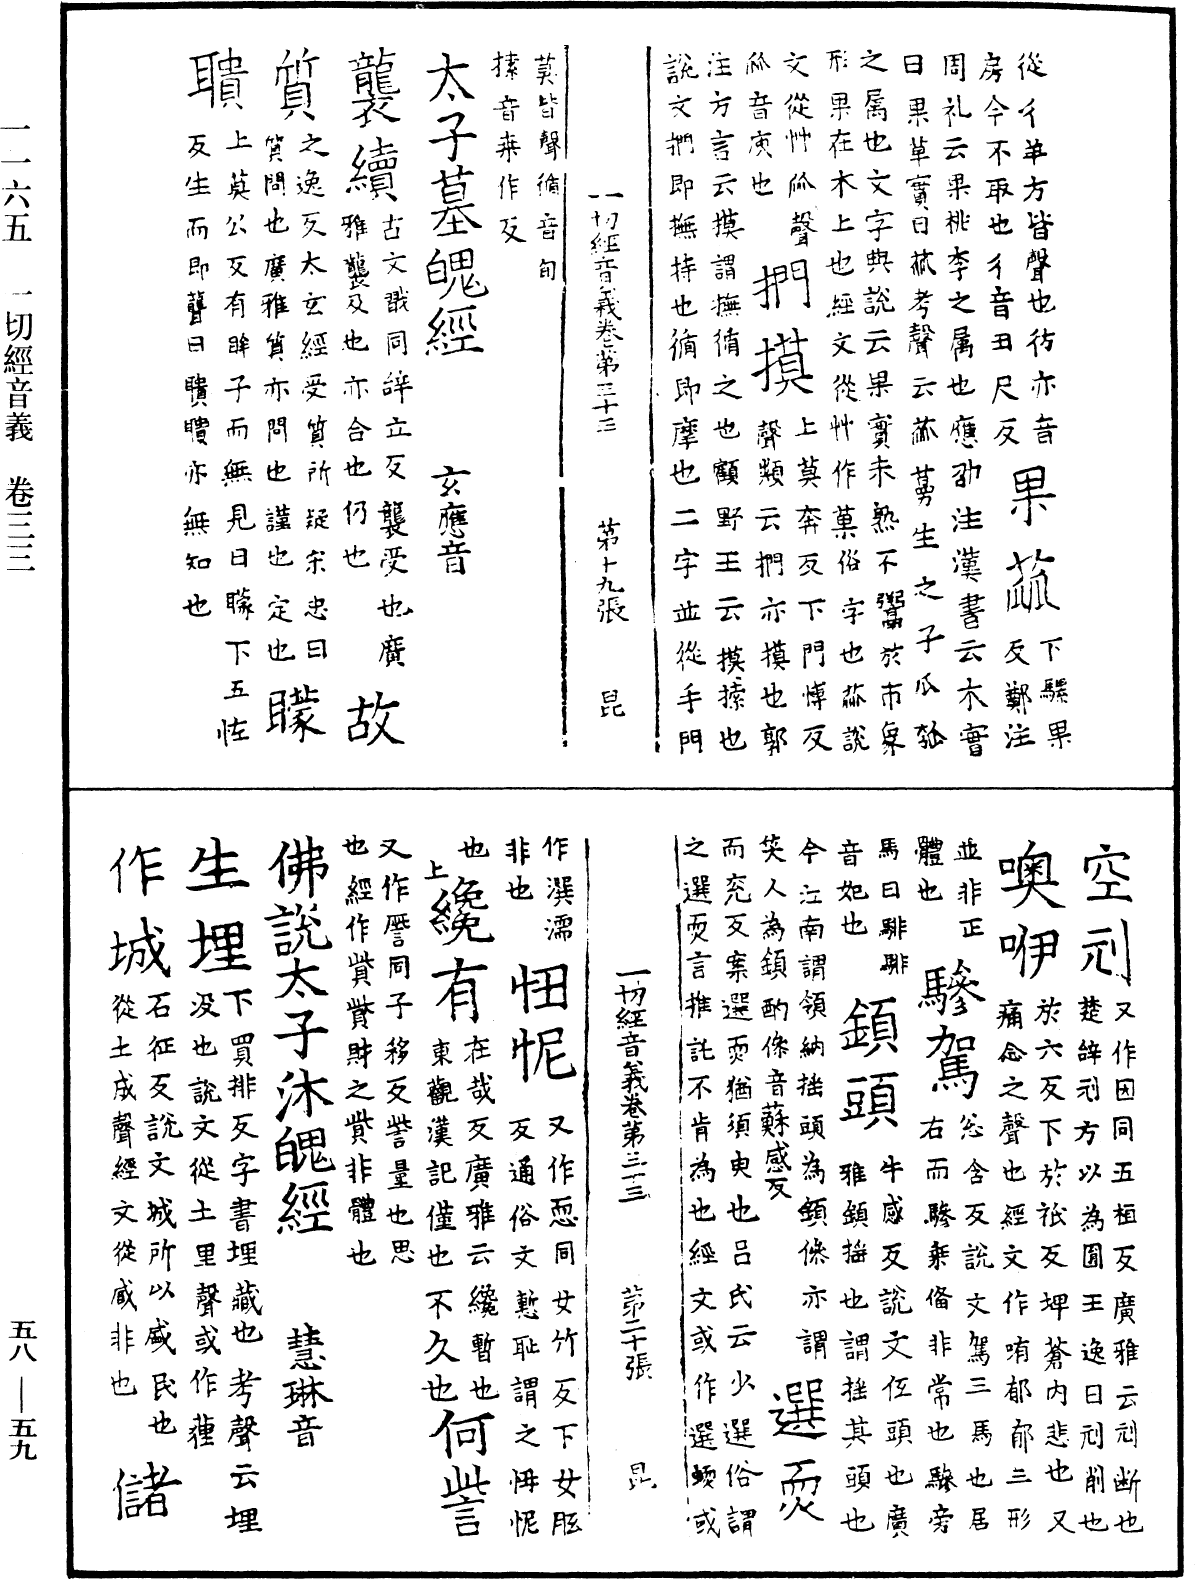 一一六五　一切經音義　卷三三
五八—五九
從彳〓方皆聲也彷亦音
房今不取也彳音丑尺反
果蓏
下騾果
反鄭注
周礼云果桃李之属也應劭注漢書云木實
曰果草實曰蓏考聲云蓏蔓生之子瓜瓠
之属也文字典說云果實未熟不鬻於市
形果在木上也經文從艸作菓俗字也蓏說
文從艸㼌聲
㼌音庾也
捫摸
上莫奔反下門愽反
聲類云捫亦摸也郭
注方言云摸謂撫循之也顧野王云摸㨞也
說文捫即撫持也循即摩也二字並從手門
一切經音義卷第三十三　第十九張　昆
莫皆聲循音旬
㨞音桒作反
太子墓魄經　玄應音
襲續
古文戩同辞立反襲受也廣
雅襲及也亦合也仍也
故質
之逸反太玄經受質所疑宋忠曰
質問也廣雅質亦問也謹也定也
矇聵
上莫公反有眸子而無見曰矇下五恠
反生而即聾曰聵聵亦無知也
空刓
又作园同五桓反廣雅云刓断也
楚辞刓方以為圓王逸曰刓削也
噢咿
於六反下於祇反埤蒼内悲也又
痛念之聲也經文作哊郁郁三形
並非正
體也
驂駕
忩含反說文駕三馬也居
右而驂乗俻非常也驂旁
馬曰騑騑
音妃也
鎖頭
牛感反說文伍頭也廣
雅鎖揺也謂揺其頭也
今江南謂領納揺頭為鎖傪亦謂
笑人為鎖酌傪音蘇感反
選耎
而兖反案選耎猶須臾也吕氏云少選俗謂
之選耎言推託不肯為也經文或作選蝡或
一切經音義卷第三十三　第二十張　昆
作㵌濡
非也
忸怩
又作恧同女竹反下女𦙆
反通俗文慙耻謂之忸怩
也
上
纔有
在哉反廣雅云纔暫也
東觀漢記僅也不久也
何訾
又作㿉同子移反訾量也思
也經作貲貲財之貲非體也
佛說太子沐魄經　慧琳音
生埋
下買排反字書埋藏也考聲云埋
没也說文從土里聲或作薶
作城
石征反說文城所以盛民也
從土成聲經文從咸非也
儲